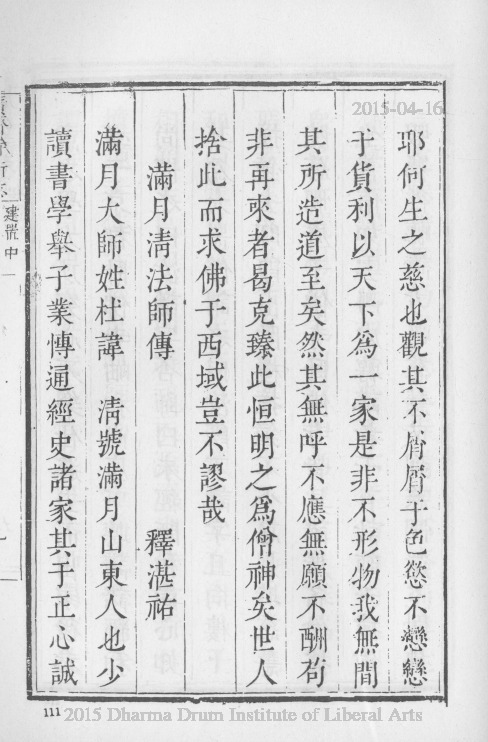 2015-04-16
耶何生之慈也觀其不屑屑于色慾不戀戀
于貨利以天下爲一家是非不形物我無間
其所造道至矣然其無呼不應無願不酬苟
非再來者曷克臻此恒明之爲僧神矣世人
捨此而求佛于西域豈不謬哉
滿月清法師傳 釋湛祐
滿月大師姓杜諱 清號滿月山東人也少
讀書學舉子業博通經史諸家其于正心誠
建置中
一
111
2015 Dharma Drum Institute of Liberal Arts